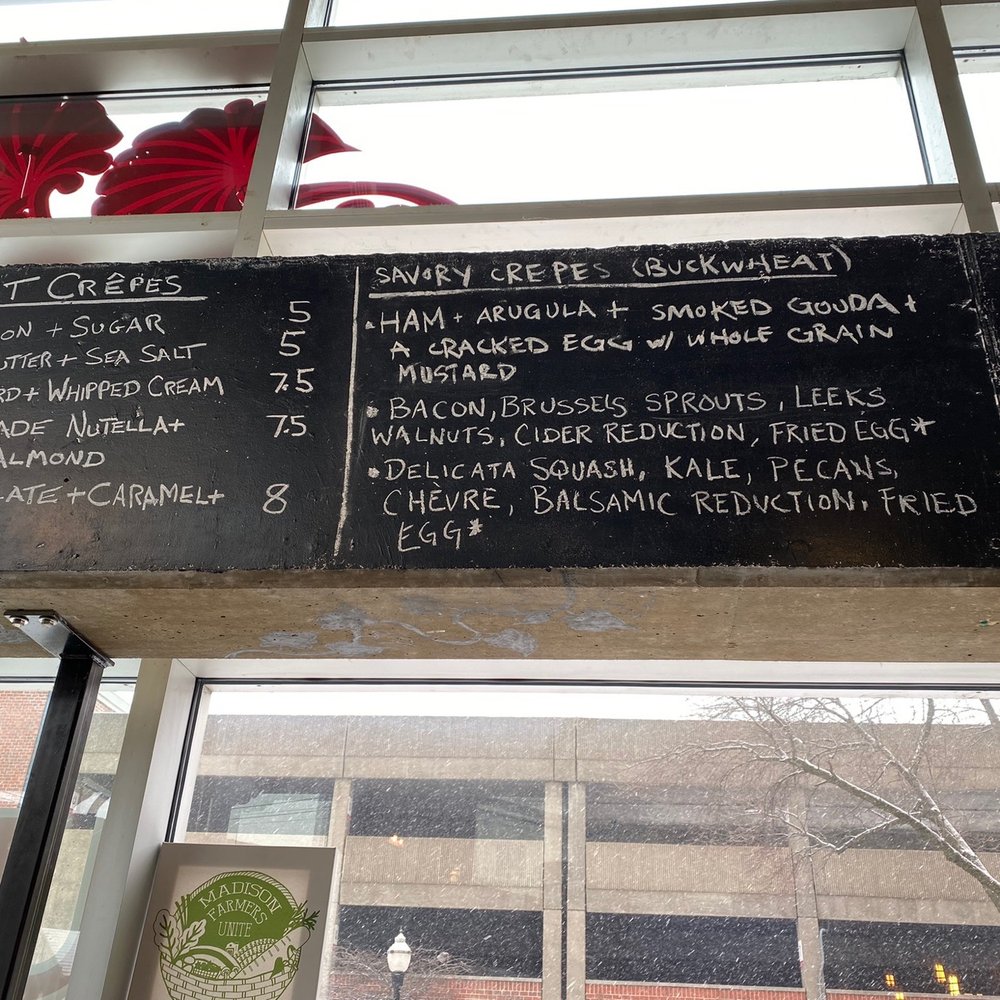 T CRÊPES
ON + SUGAR 5
UTTER + SEA SALT 5
RD + WHIPPED CREAM 7.5
ADE NUTELLA + 7.5
ALMOND
LATE + CARAMEL + 8
SAVORY CREPES (BUCKWHEAT)
• HAM + ARUGULA + SMOKED GOUDA +
A CRACKED EGG w/ WHOLE GRAIN
MUSTARD
• BACON, BRUSSELS SPROUTS, LEEKS
WALNUTS, CIDER REDUCTION, FRIED EGG*
• DELICATA SQUASH, KALE, PECANS,
CHÈVRE, BALSAMIC REDUCTION, FRIED
EGG*
MADISON
FARMERS
UNITE